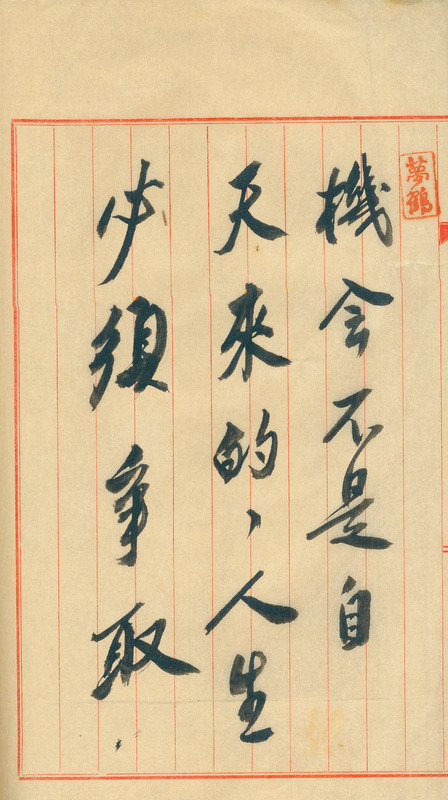 夢鶴
機会不是自
天來的，人生
必須爭取.